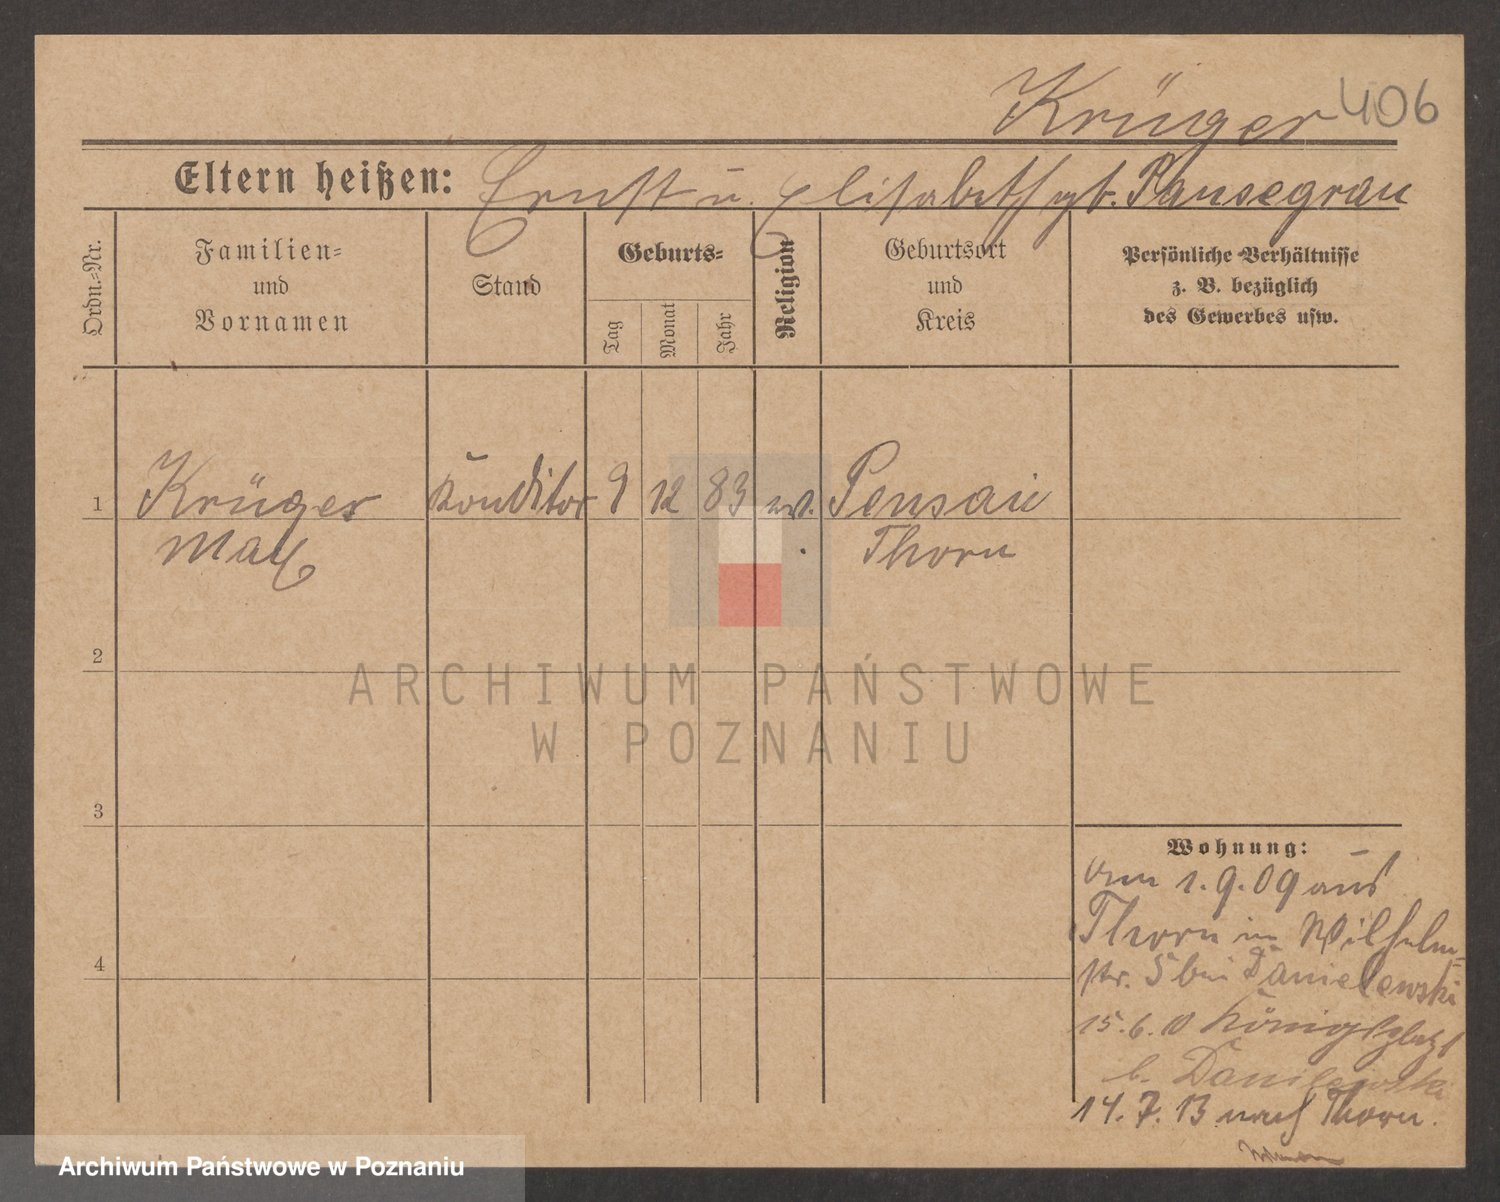 Krüger 406
Eltern heißen: Ernst u. Elisabeth gb. Pansegrau
Ordn.-Nr.
Familien-
und
Vornamen
Stand
Geburts-
Tag
Monat
Jahr
Religion
Geburtsort
und
Kreis
Persönliche Verhältnisse
z. B. bezüglich
des Gewerbes usw.
1 Krüger Konditor 9 12 83 ev. Pensau
Max Thorn
2
ARCHIWUM PAŃSTWOWE
W POZNANIU
3
4
Wohnung:
Am 1.9.09 aus
Thorn in Wilhelm-
str. 5 bei Danielewski
15.6.10 Königsplatz
b. Danilewski
14.7.13 nach Thorn.
Archiwum Państwowe w Poznaniu